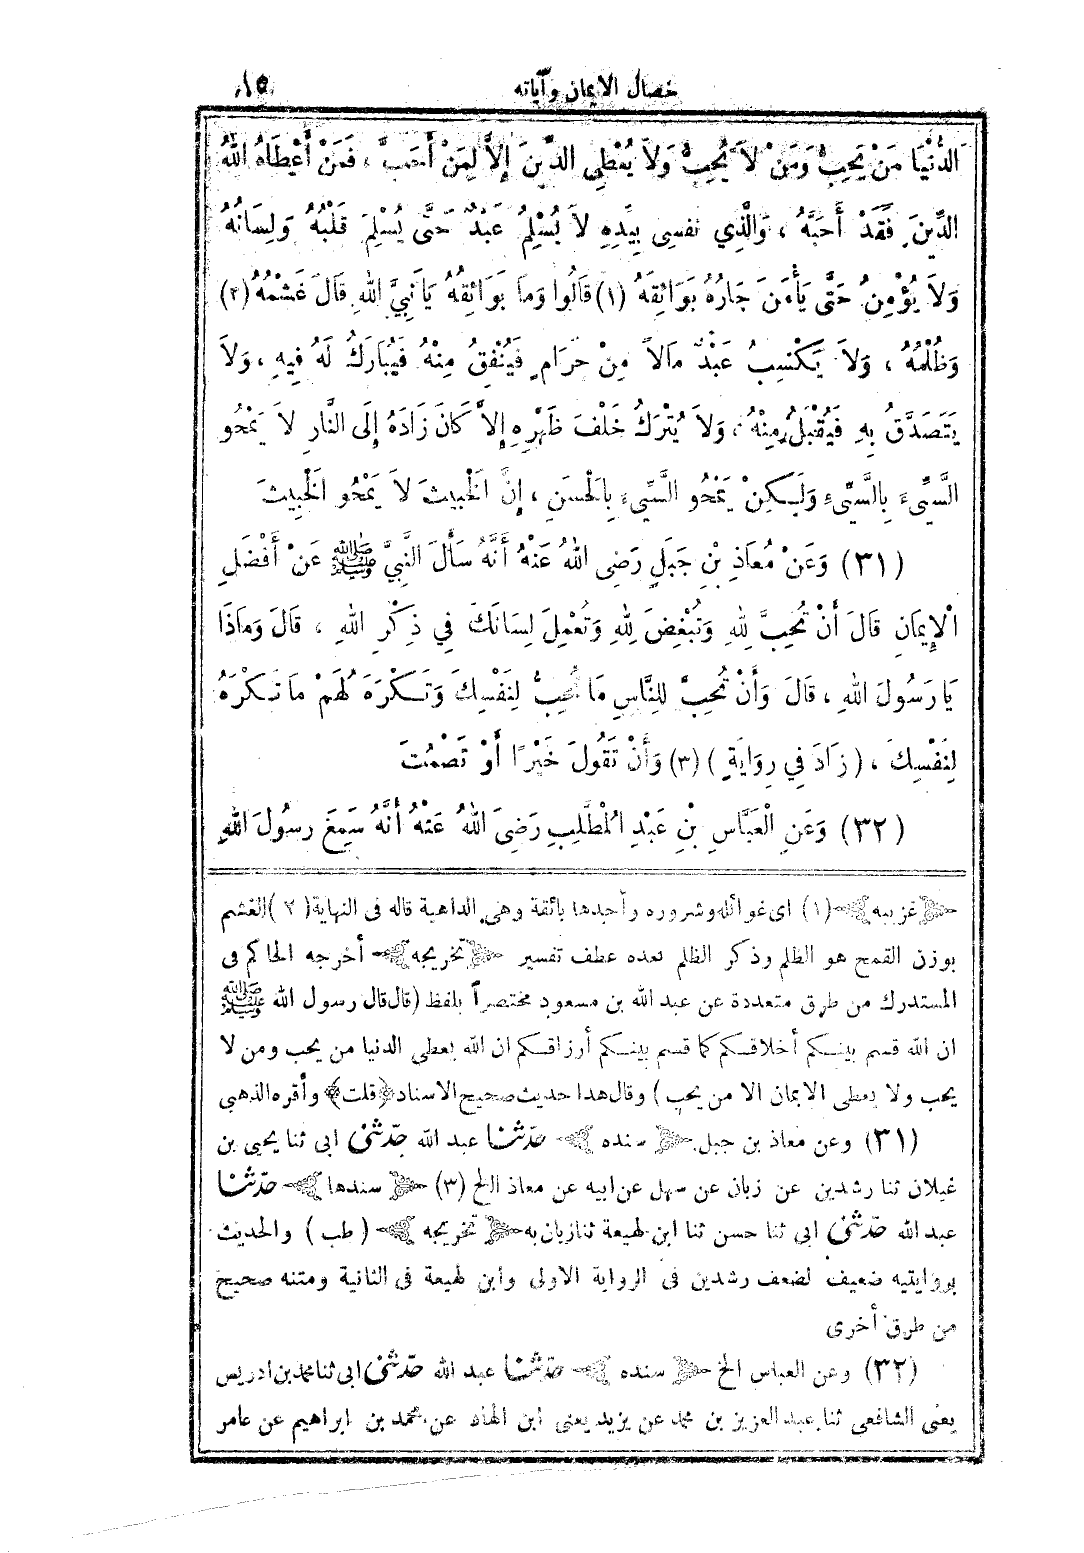 خصال الايمان وآياته ١٥
الدُّنْيَا مَنْ يُحِبُّ وَمَنْ لاَ يُحِبُّ وَلاَ يُعْطِى الدِّينَ إِلاَّ لِمَنْ أَحَبَّ ، فَمَنْ أَعْطَاهُ اللهُ
الدِّينَ فَقَدْ أَحَبَّهُ ، وَالَّذِي نَفْسِى بِيَدِهِ لاَ يُسْلِمُ عَبْدٌ حَتَّى يُسْلِمَ قَلْبُهُ وَلِسَانُهُ
وَلاَ يُؤْمِنُ حَتَّى يَأْمَنَ جَارُهُ بَوَائِقَهُ (١) قَالُوا وَمَا بَوَائِقُهُ يَانَبِيَّ اللهِ قَالَ غَشْمُهُ (٢)
وَظُلْمُهُ ، وَلاَ يَكْسِبُ عَبْدٌ مَالاً مِنْ حَرَامٍ فَيُنْفِقُ مِنْهُ فَيُبَارَكُ لَهُ فِيهِ ، وَلاَ
يَتَصَدَّقُ بِهِ فَيُقْبَلُ مِنْهُ ، وَلاَ يُتْرَكُ خَلْفَ ظَهْرِهِ إِلاَّ كَانَ زَادَهُ إِلَى النَّارِ لاَ يَمْحُو
السَّيِّءَ بِالسَّيِّءِ وَلَكِنْ يَمْحُو السَّيِّءَ بِالْحَسَنِ ، إِنَّ الْخَبِيثَ لاَ يَمْحُو الْخَبِيثَ
(٣١) وَعَنْ مُعَاذِ بْنِ جَبَلٍ رَضِى اللهُ عَنْهُ أَنَّهُ سَأَلَ النَّبِيَّ ﷺ عَنْ أَفْضَلِ
الْإِيمَانِ قَالَ أَنْ تُحِبَّ لِلهِ وَتُبْغِضَ لِلهِ وَتُعْمِلَ لِسَانَكَ فِي ذِكْرِ اللهِ ، قَالَ وَمَاذَا
يَارَسُولَ اللهِ ، قَالَ وَأَنْ تُحِبَّ لِلنَّاسِ مَا تُحِبُّ لِنَفْسِكَ وَتَكْرَهَ لَهُمْ مَا تَكْرَهُ
لِنَفْسِكَ ، ( زَادَ فِي رِوَايَةٍ ) (٣) وَأَنْ تَقُولَ خَيْرًا أَوْ تَصْمُتَ
(٣٢) وَعَنِ الْعَبَّاسِ بْنِ عَبْدِ الْمُطَّلِبِ رَضِىَ اللهُ عَنْهُ أَنَّهُ سَمِعَ رَسُولَ اللهِ
﴿غريبه﴾ (١) اى غوائله وشروره وأحدها بائقة وهى الداهية قاله فى النهاية (٢) الغشم
بوزن القمح هو الظلم وذكر الظلم بعده عطف تفسير ﴿تخريجه﴾ أخرجه الحاكم فى
المستدرك من طرق متعددة عن عبد الله بن مسعود مختصراً بلفظ (قال قال رسول الله ﷺ
ان الله قسم بينكم أخلاقكم كما قسم بينكم أرزاقكم ان الله يعطى الدنيا من يحب ومن لا
يحب ولا يعطى الايمان الا من يحب ) وقال هذا حديث صحيح الاسناد ﴿قلت﴾ وأقره الذهبى
(٣١) وعن معاذ بن جبل ﴿ سنده ﴾ حدّثنا عبد الله حدّثنى ابى ثنا يحيى بن
غيلان ثنا رشدين عن زبان عن سهل عن ابيه عن معاذ الخ (٣) ﴿ سندها ﴾ حدّثنا
عبد الله حدّثنى ابى ثنا حسن ثنا ابن لهيعة ثنا زبان به ﴿ تخريجه ﴾ ( طب ) والحديث
بروايتيه ضعيف لضعف رشدين فى الرواية الاولى وابن لهيعة فى الثانية ومتنه صحيح
من طرق أخرى
(٣٢) وعن العباس الخ ﴿ سنده ﴾ حدّثنا عبد الله حدّثنى ابى ثنا محمد بن ادريس
يعنى الشافعى ثنا عبد العزيز بن محمد عن يزيد يعنى ابن الهاد عن محمد بن ابراهيم عن عامر